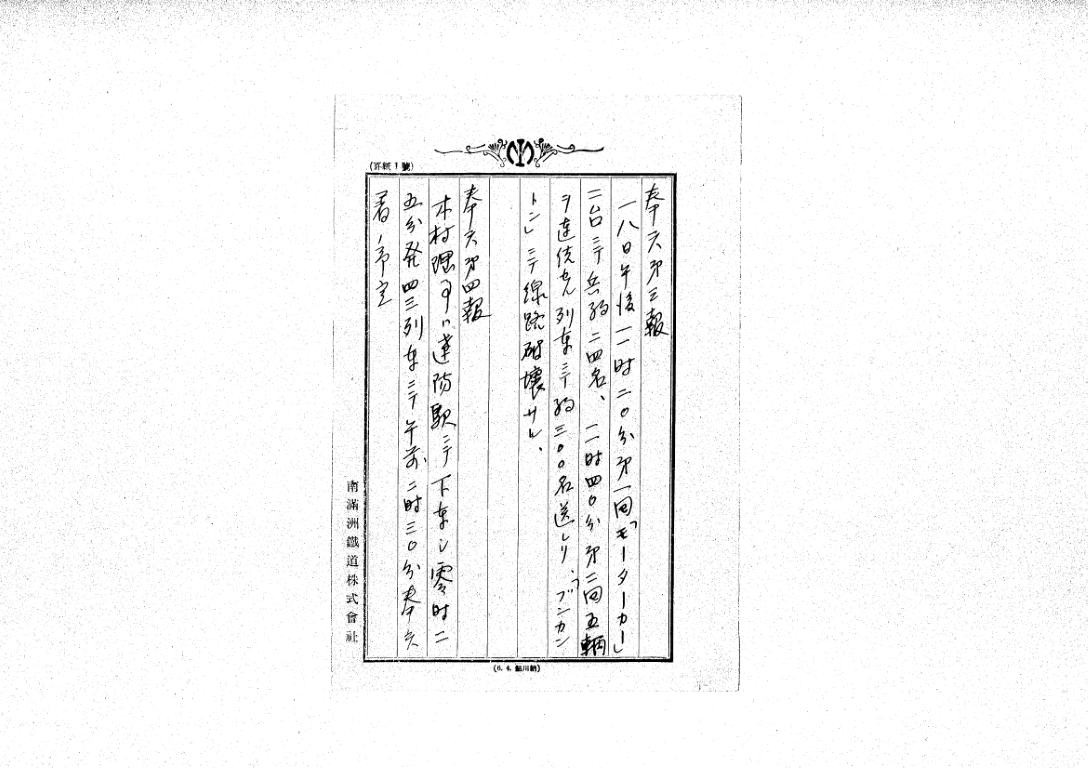 (罫紙1號)
奉天第三報
一八日午後一一时二〇分第一回「モーターカー」
二台ニテ兵約二四名、一一时四〇分第二回五輌
ヲ連結セル列車ニテ約三〇〇名送レリ、「ブンカン
トン」ニテ線路破壊サレ、
奉天第四報
木村理事ハ連防駅ニテ下車シ零时二
五分発四三列車ニテ午前二时三〇分奉天
着ノ予定
南滿洲鐵道株式會社